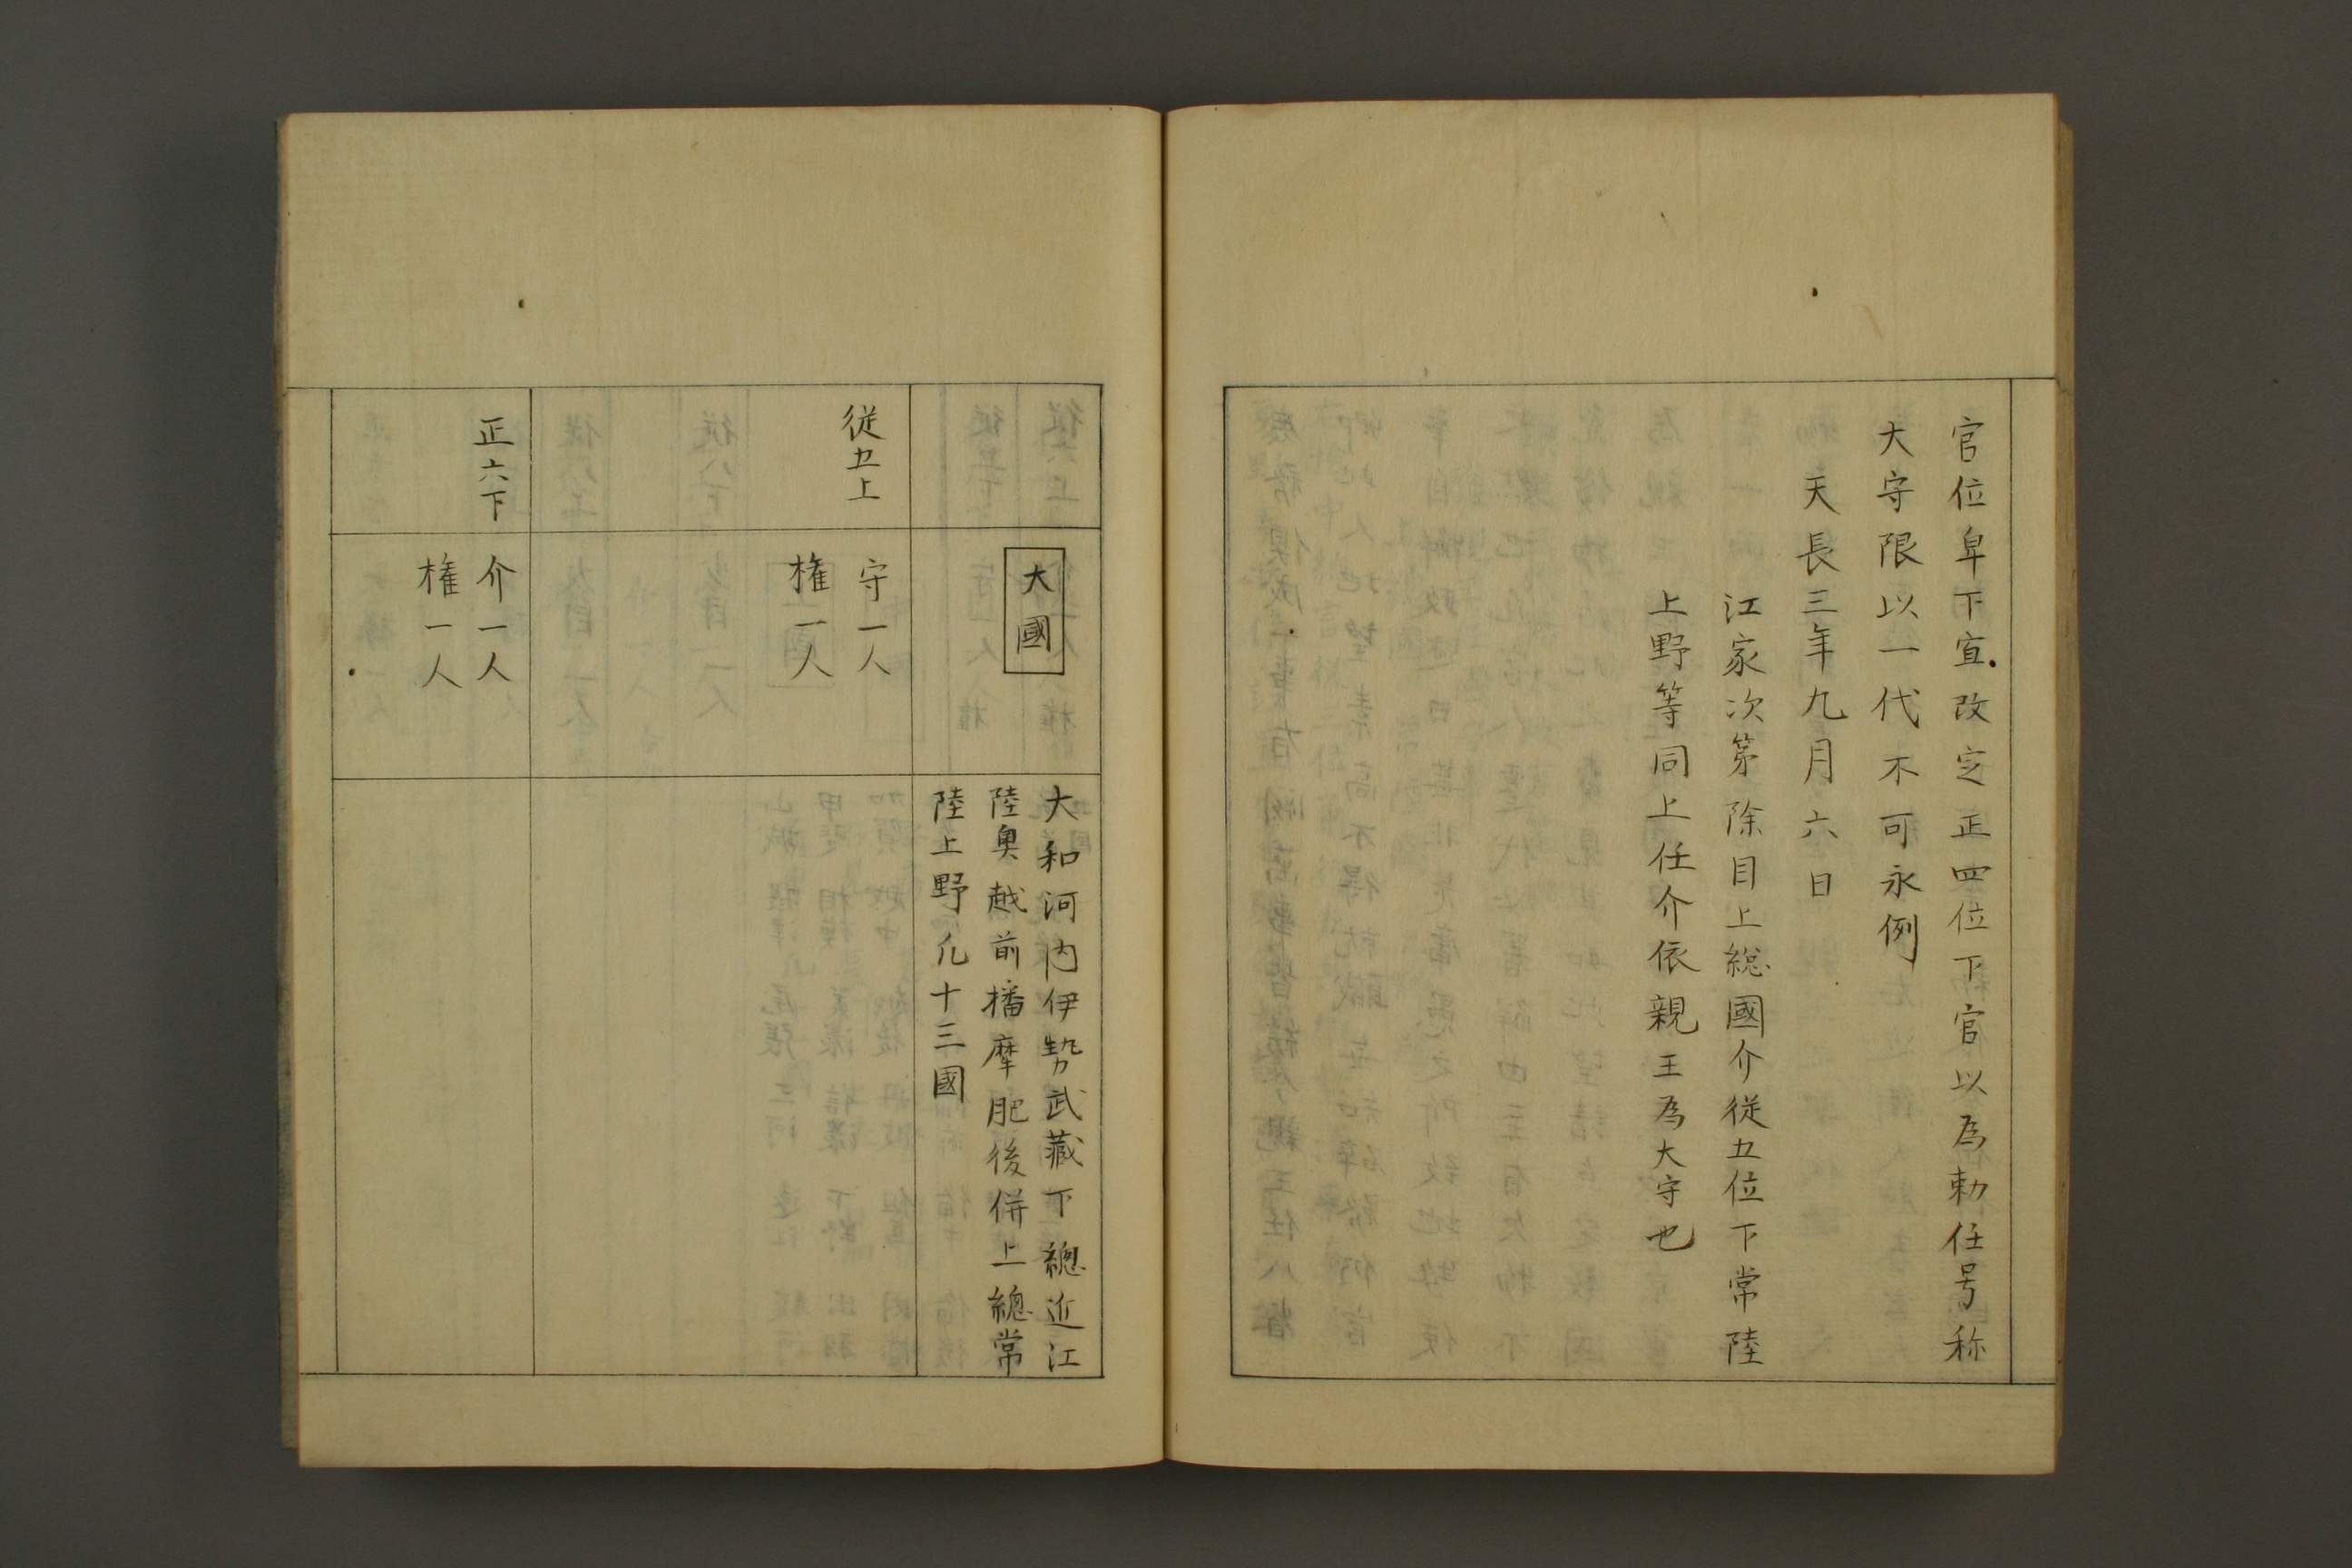 官位卑下宜改定正四位下官以為勅任号称
大守限以一代不可永例
天長三年九月六日
江家次第除目上総國介従五位下常陸
上野等同上任介依親王為大守也
大國
大和河内伊勢武蔵下總近江
陸奥越前播摩肥後併上總常
陸上野凡十三國
従五上
守一人
権一人
正六下
介一人
権一人